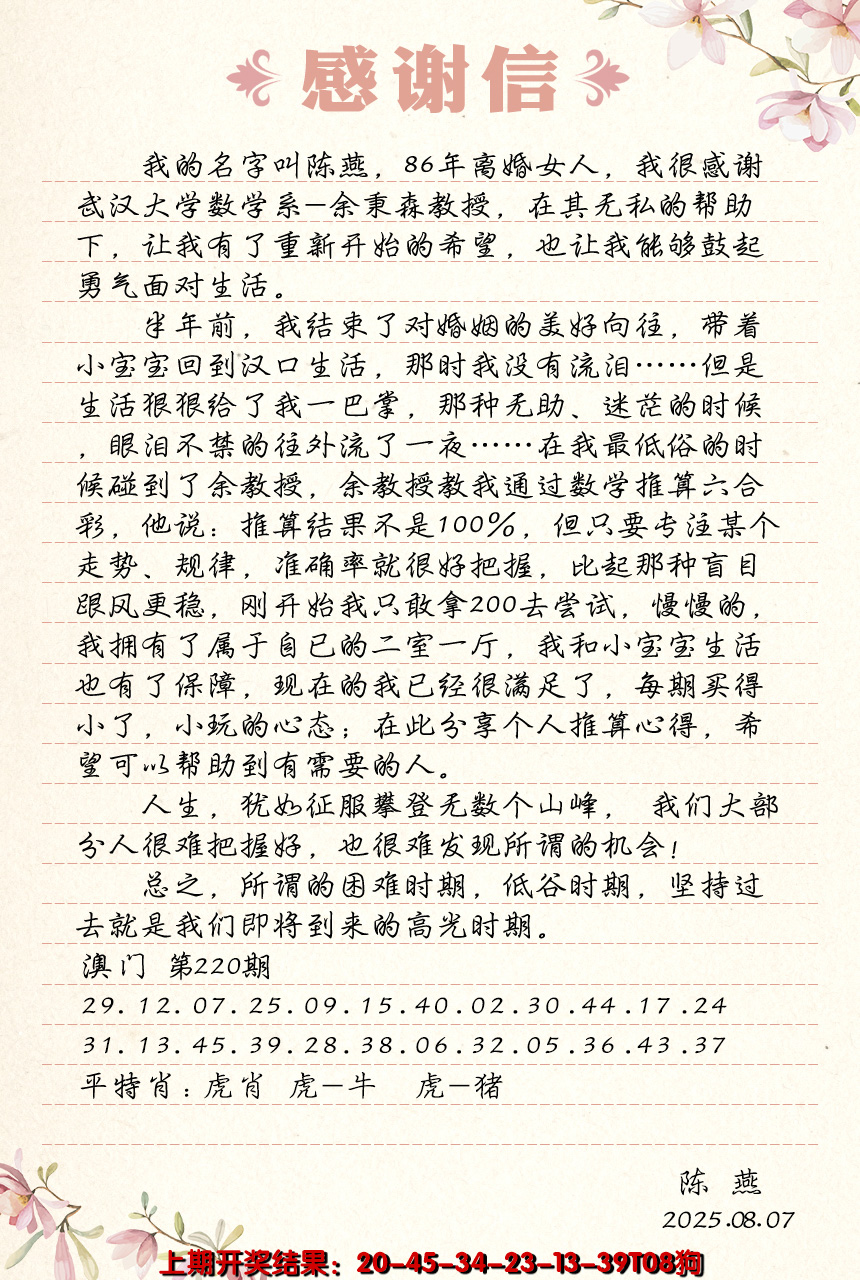 感谢信
我的名字叫陈燕，86年离婚女人，我很感谢
武汉大学数学系—余秉森教授，在其无私的帮助
下，让我有了重新开始的希望，也让我能够鼓起
勇气面对生活。
半年前，我结束了对婚姻的美好向往，带着
小宝宝回到汉口生活，那时我没有流泪……但是
生活狠狠给了我一巴掌，那种无助、迷茫的时候
，眼泪不禁的往外流了一夜……在我最低俗的时
候碰到了余教授，余教授教我通过数学推算六合
彩，他说：推算结果不是100%，但只要专注某个
走势、规律，准确率就很好把握，比起那种盲目
跟风更稳，刚开始我只敢拿200去尝试，慢慢的，
我拥有了属于自已的二室一厅，我和小宝宝生活
也有了保障，现在的我已经很满足了，每期买得
小了，小玩的心态；在此分享个人推算心得，希
望可以帮助到有需要的人。
人生，犹如征服攀登无数个山峰， 我们大部
分人很难把握好，也很难发现所谓的机会！
总之，所谓的困难时期，低谷时期，坚持过
去就是我们即将到来的高光时期。
澳门 第220期
29.12.07.25.09.15.40.02.30.44.17.24
31.13.45.39.28.38.06.32.05.36.43.37
平特肖：虎肖 虎—牛 虎—猪
陈 燕
2025.08.07
上期开奖结果：20-45-34-23-13-39T08狗